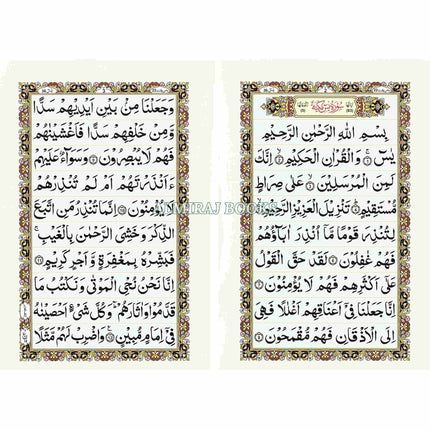 سُوْرَةُ يٰسٓ مَكِّيَّةٌ
بِسْمِ اللّٰهِ الرَّحْمٰنِ الرَّحِيْمِ
يٰسٓ ۝ وَالْقُرْاٰنِ الْحَكِيْمِ ۝ اِنَّكَ
لَمِنَ الْمُرْسَلِيْنَ ۝ عَلٰى صِرَاطٍ
مُّسْتَقِيْمٍ ۝ تَنْزِيْلَ الْعَزِيْزِ الرَّحِيْمِ ۝
لِتُنْذِرَ قَوْمًا مَّاۤ اُنْذِرَ اٰبَآؤُهُمْ
فَهُمْ غٰفِلُوْنَ ۝ لَقَدْ حَقَّ الْقَوْلُ
عَلٰٓى اَكْثَرِهِمْ فَهُمْ لَا يُؤْمِنُوْنَ ۝
اِنَّا جَعَلْنَا فِيْٓ اَعْنَاقِهِمْ اَغْلٰلًا فَهِيَ
اِلَى الْاَذْقَانِ فَهُمْ مُّقْمَحُوْنَ ۝
وَجَعَلْنَا مِنْۢ بَيْنِ اَيْدِيْهِمْ سَدًّا
وَّمِنْ خَلْفِهِمْ سَدًّا فَاَغْشَيْنٰهُمْ
فَهُمْ لَا يُبْصِرُوْنَ ۝ وَسَوَآءٌ عَلَيْهِمْ
ءَاَنْذَرْتَهُمْ اَمْ لَمْ تُنْذِرْهُمْ
لَا يُؤْمِنُوْنَ ۝ اِنَّمَا تُنْذِرُ مَنِ اتَّبَعَ
الذِّكْرَ وَخَشِيَ الرَّحْمٰنَ بِالْغَيْبِ ۚ
فَبَشِّرْهُ بِمَغْفِرَةٍ وَّاَجْرٍ كَرِيْمٍ ۝
اِنَّا نَحْنُ نُحْيِ الْمَوْتٰى وَنَكْتُبُ مَا
قَدَّمُوْا وَاٰثَارَهُمْ ۗ وَكُلَّ شَيْءٍ اَحْصَيْنٰهُ
فِيْٓ اِمَامٍ مُّبِيْنٍ ۝ وَاضْرِبْ لَهُمْ مَّثَلًا
ANMHRAJ BOOKS